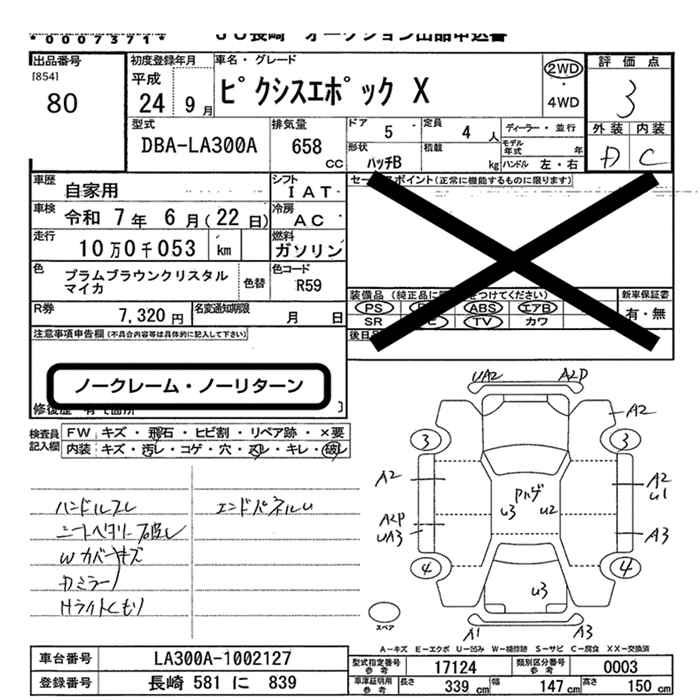 *0007371* JU長崎 オークション出品申込書
出品番号
[854]
80
初度登録年月
平成
24 9月
車名・グレード
ピクシスエポック X
2WD
・
4WD
評価点
3
外装 内装
D C
型式
DBA-LA300A
排気量
658
CC
ドア 5
定員 4 人
ディーラー・並行
形状
ハッチB
積載 kg
モデル年式 年
ハンドル 左・右
車歴 自家用
シフト IAT
車検 令和 7年 6月(22日)
冷房 AC
走行 10万0千053 km
燃料 ガソリン
色 プラムブラウンクリスタル
マイカ
色替
色コード
R59
R券 7,320円
名変通知期限 月 日
注意事項申告欄(不具合内容等は具体的に記入して下さい)
ノークレーム・ノーリターン
(正常に機能するものに限ります)
装備品
PS ABS エアB
SR TV カワ
新車保証書
有・無
検査員
記入欄
FW キズ・飛石・ヒビ割・リペア跡・×要
内装 キズ・汚レ・コゲ・穴・スレ・キレ・破レ
ハンドルスレ
エンドパネルU
Wカバーキズ
Dミラー
Hライトくもり
UA2 A2P
A2
3 3
A2
A2
U1
Pハゲ
U3 U2
A2P
UA3
A3
4 4
U3
スペア
A1 A3
A-キズ E-エクボ U-凹み W-補修跡 S-サビ C-腐食 XX-交換済
車台番号 LA300A-1002127
登録番号 長崎 581 に 839
型式指定番号
参考
17124
類別区分番号
参考
0003
車庫証明用
参考
長さ 339 cm 幅 147 cm 高さ 150 cm